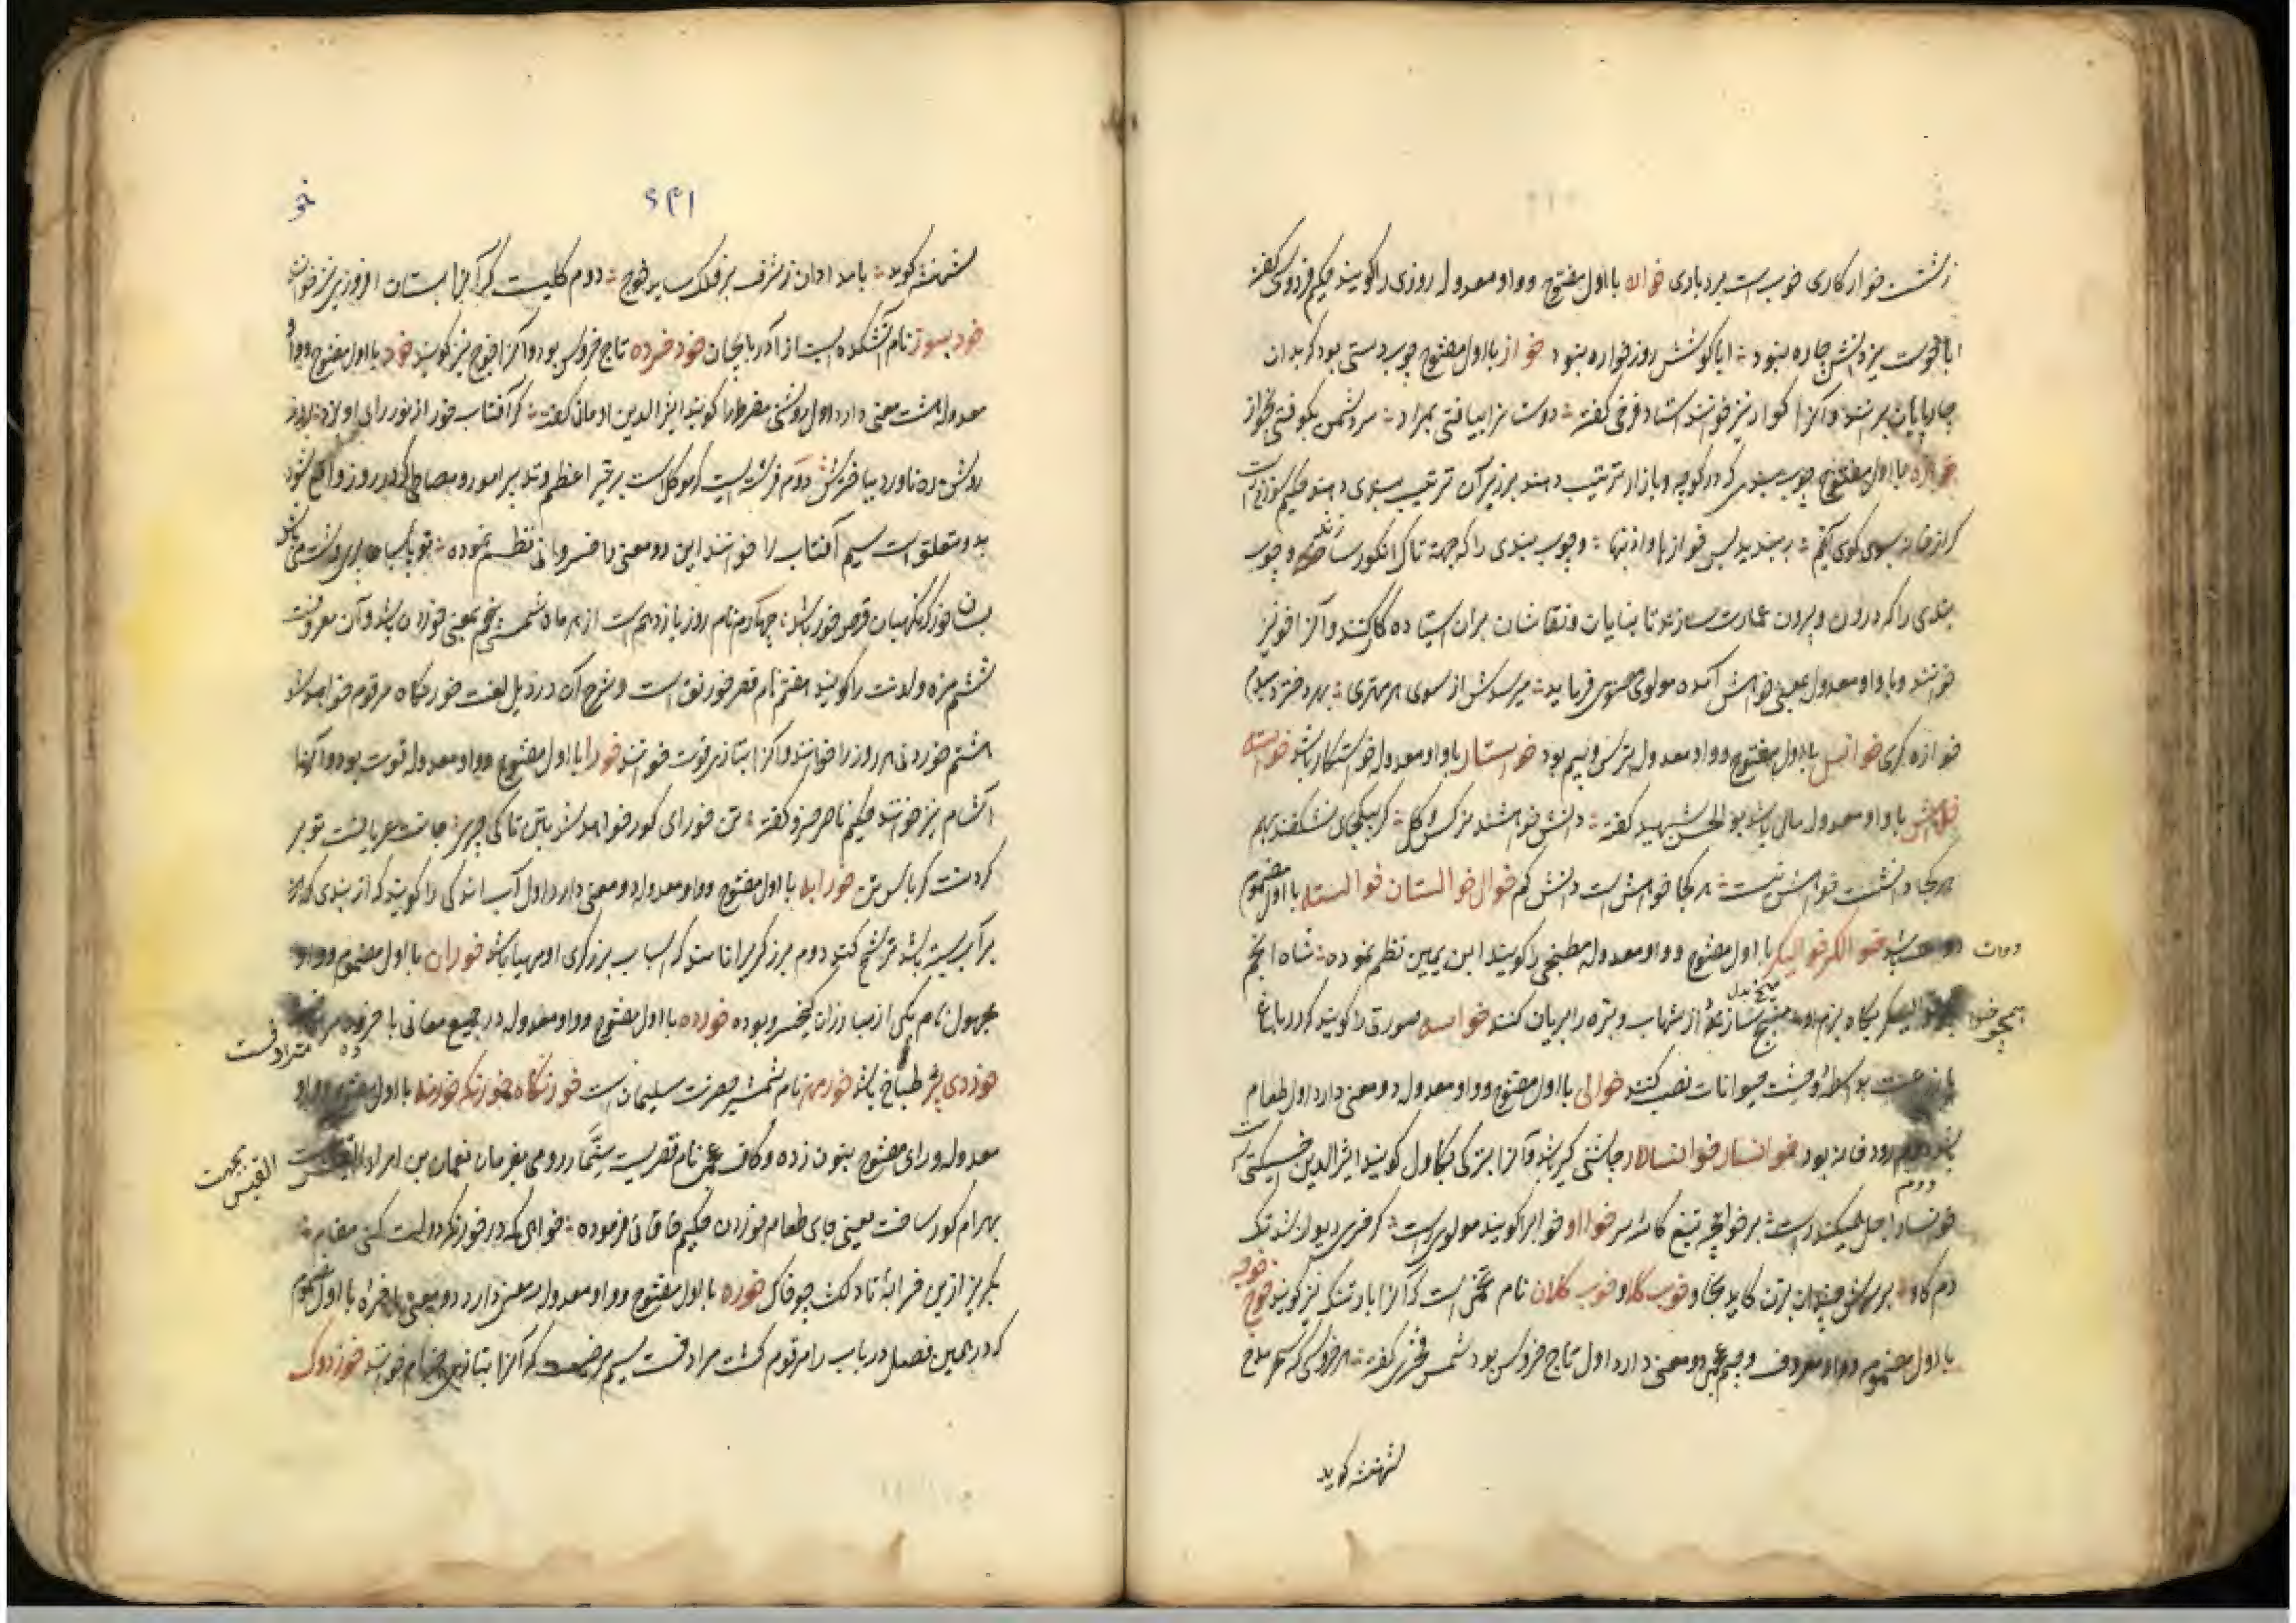 زشت خوار کاری خوبست بردباری خواره با اول مفتوح و واو معدوله روزی را گویند حکیم فردوسی گفته
ابا قوت یزدانش چاره نبود ❊ ابا کوشش روز خواره نبود خواز با اول مفتوح چوب دستی بود که بدان
چارپایان برانند و آنرا گواز نیز خوانند استاد فرخی گفته ❊ دوستانرا بیافتی بمراد ❊ سر دشمن بکوفتی بخواز
خوازه با اول مفتوح چوب بندی که در کوچه و بازار ترتیب دهند بر زبر آن ترتیب دهند حکیم سوزنی راست
که از خانه سوی کوی آیم ❊ ببندید بس خوازها و چوب بندی را که جهة تاک انگور سازند و چوب
بندی را که درون و بیرون عمارت سازند تا بنایان و نقاشان بران ایستاده کار کنند و آنرا خو نیز
خوانند و با واو معدوله بمعنی خواهش آمده مولوی معنوی فرماید ❊ میرسدش از سوی هر مهتری ❊ بهر دختر دمبدم
خوازه گری خواسل با اول مفتوح و واو معدوله ترس و بیم بود خواستار با واو معدوله خواستکار باشد خواسته
با واو معدوله مال باشد بوالحسن شهید گفته ❊ دانش و خواسته نرگس و گل ❊ که بیکجای نشکفند بهم
هر کجا دانشست خواسته نیست ❊ هر کجا خواسته است دانش کم خوال خوالستان خوالسته با اول مضموم
دوات باشد خوالگر خوالیگر با اول مفتوح و واو معدوله مطبخی را گویند ابن یمین نظم نموده ❊ شاه انجم
همچو خوالیگر بگاه بزم او از شهاب و بره را بریان کند خواسه صورتی را گویند که در باغ
یا زراعت بواسطه وحشت حیوانات نصب کنند خوالی با اول مفتوح و واو معدوله دو معنی دارد اول طعام
باشد دوم رودخانه بود خوانسار خوانسالار چاشنی گیر باشد و آنرا بترکی بکاول گویند اثیرالدین اخسیکتی راست
دوم
بر خوانچه تیغ کاسه سر خواو خواب را گویند مولوی راست ❊ کز خری دیوانه شد نک
دم گاو ❊ بر سرش چندان بزن کاید بخاو خوب کلا و خوب کلان نام تخمی است که آنرا بارتنگ نیز گویند خوچ خوچه
با اول مضموم و واو معروف و جیم عجمی دو معنی دارد اول تاج خروس بود شمس فخری گفته ❊ هر خروسی که
شهنشه گوید
خو
۲۴۱
شهنشه گوید ❊ بامدادان ز شرف بر فلک ساید خوچ ❊ دوم گلیست که آنرا بستان افروز نیز خوانند
خود سوز نام آتشکده ایست از آذربایجان خود خروه تاج خروس بود و آنرا خوچ نیز گویند خور با اول مفتوح و واو
معدوله هشت معنی دارد اول روشنی مفرط را گویند اثیرالدین اومانی گفته ❊ گر آفتاب خور از نور رای او
دوم فرشته ایست که موکل است بر نیر اعظم و تدبیر امور و مصالح که در روز واقع شود
بدو متعلق است سیم آفتاب را خوانند این دو معنی را خسروانی نظم نموده
بسان خور که نگهبان قرص خور باشد ❊ چهارم نام روز یازدهم است از هر ماه شمسی پنجم بمعنی خوردن باشد و آن معروفست
ششم مزه و لذت را گویند هفتم نام قصر خورنق است و شرح آن در ذیل لغت خورنگاه مرقوم خواهد شد
هشتم خوردنی هر روز را خوانند و آنرا بتازی قوت خوانند خورا با اول مفتوح و واو معدوله قوت بود و آنرا
آشام نیز خوانند حکیم ناصر خسرو گفته ❊ تن خورای گور خواهد شد بتن تا کی چری ❊ جانت عریانست تو بر
گرد تن کرباس تن خورابه با اول مفتوح و واو معدوله دو معنی دارد اول آب اندکی را گویند که از بندی که در
بر آب بسته باشد ترشح کند دوم برزگر را نامند که اسباب برزگری او مهیا باشد خوران با اول مضموم و واو
مجهول نام یکی از مبارزان کیخسرو بوده خورده با اول مفتوح و واو معدوله در جمیع معانی با خرده مترادفست
خوردی پز طباخ باشد خورمهر نام شمشیر حضرت سلیمان است خورنگاه خورنگه خورنه با اول مفتوح و واو
معدوله و رای مفتوح بنون زده و کاف عجمی نام قصریست سنمار رومی بفرمان نعمان بن امراءالقیس بجهت
بهرام گور ساخت یعنی جای طعام خوردن حکیم خاقانی فرموده ❊ خواهی که در خورنگه دولت کنی مقام ❊
بگریز ازین خرابه نادلکش چو خاک خوره با اول مفتوح و واو معدوله سه معنی دارد دو معنی با خره با اول مضموم
که در همین فصل در باب را مرقوم گشت مرادفست سیم مرضیست که آنرا بتازی جذام خوانند خوردوک